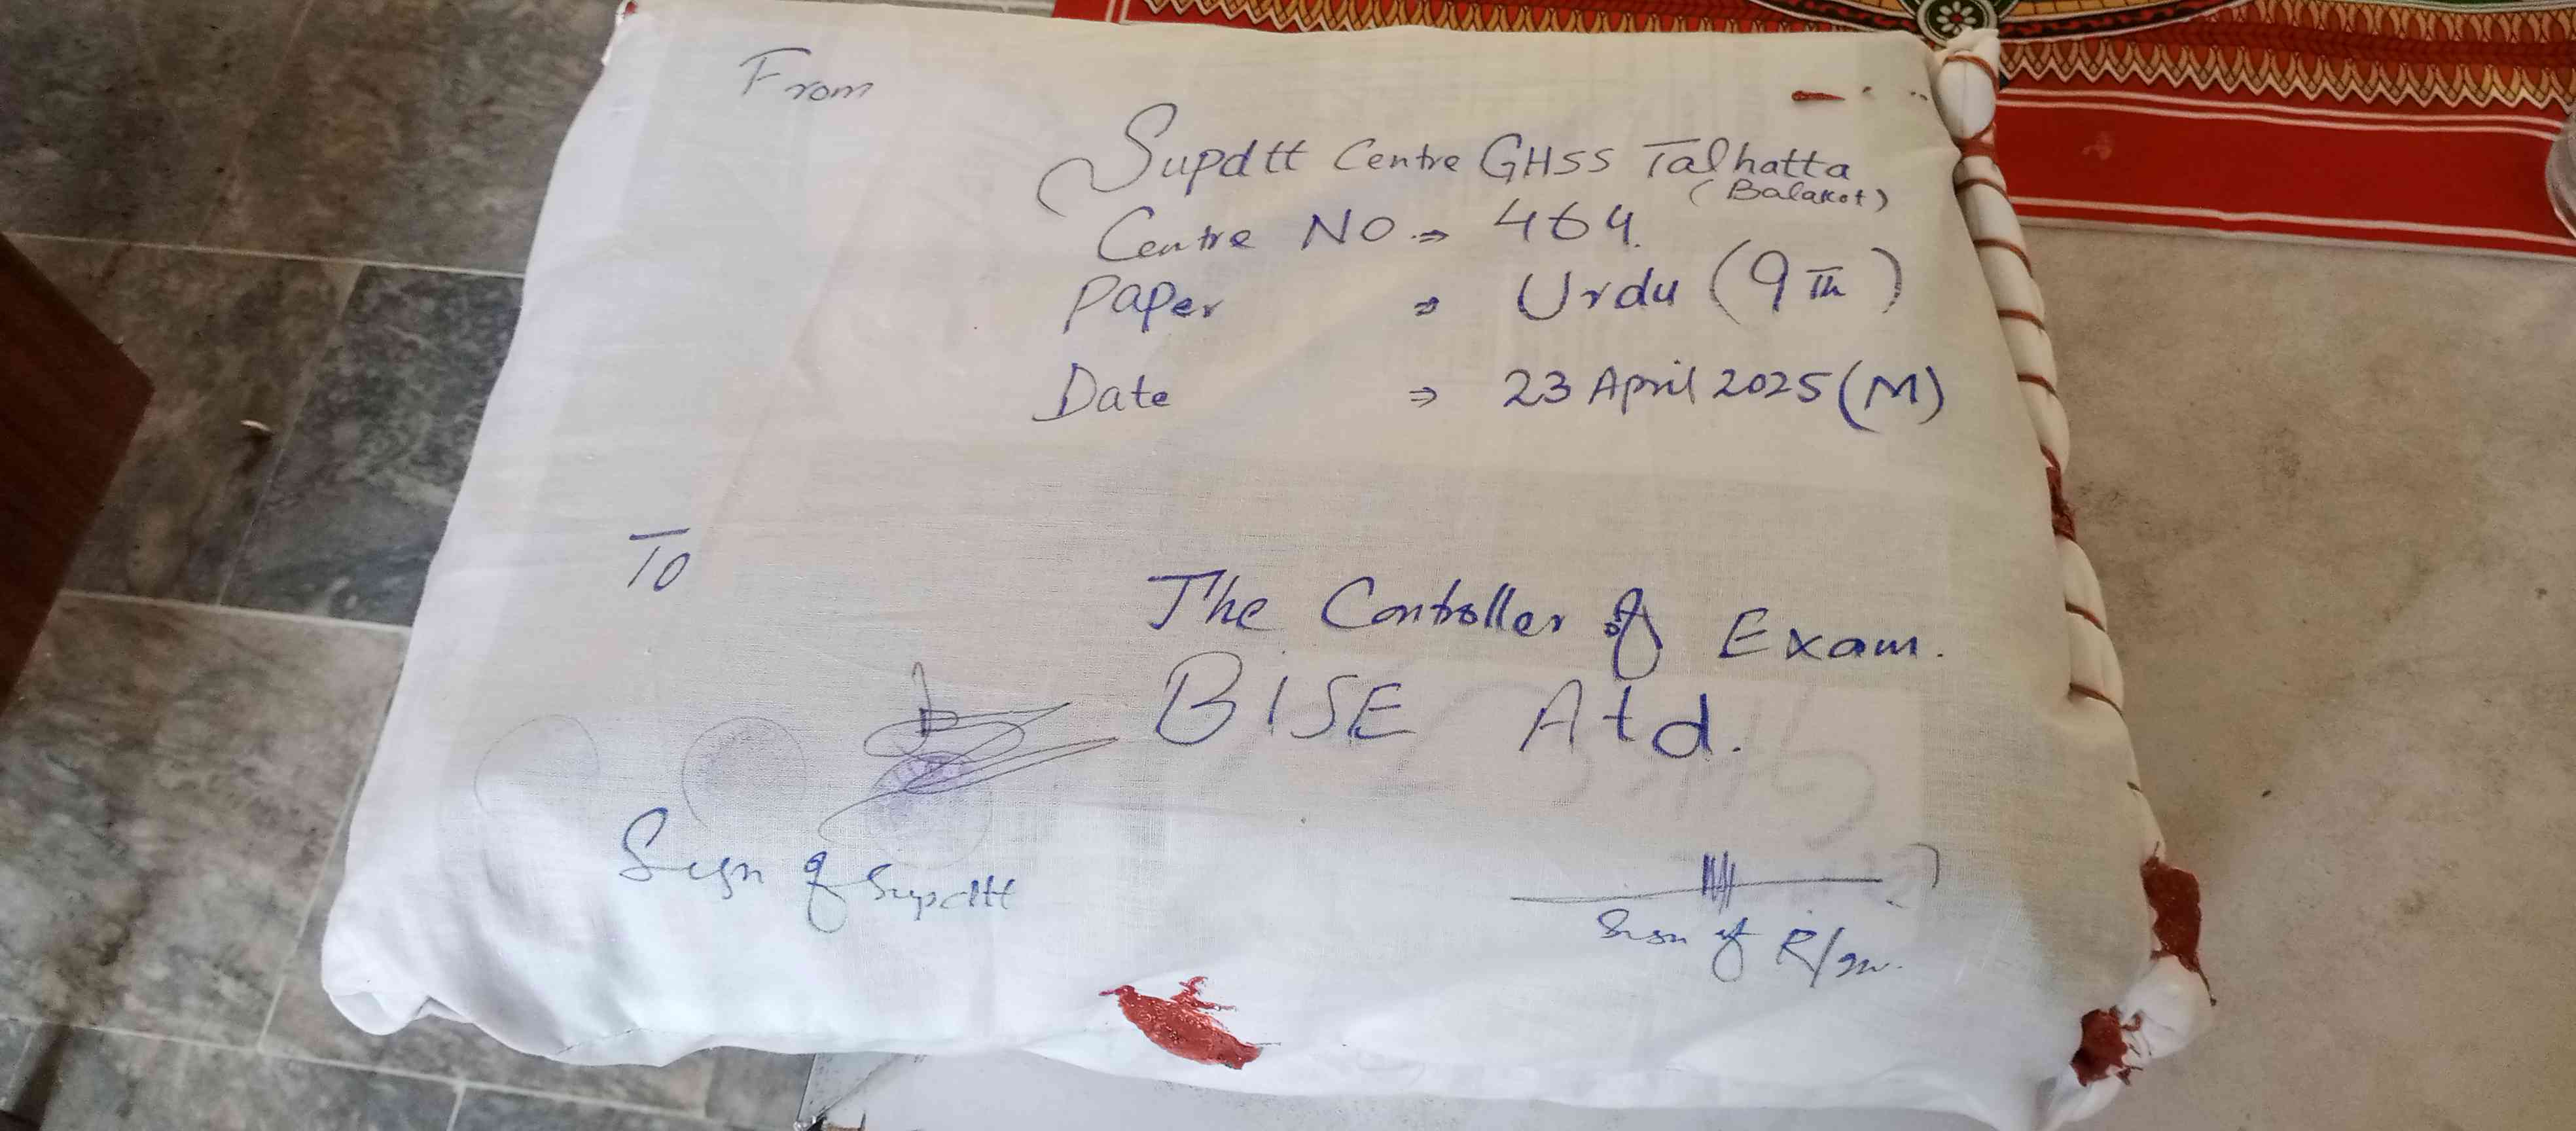 From
Supdtt Centre GHSS Talhatta
(Balakot)
Centre No. ⇒ 464.
Paper ⇒ Urdu (9Th)
Date ⇒ 23 April 2025 (M)
To
The Controller of Exam.
BISE Atd.
Sign of Supdtt
Sign of R/